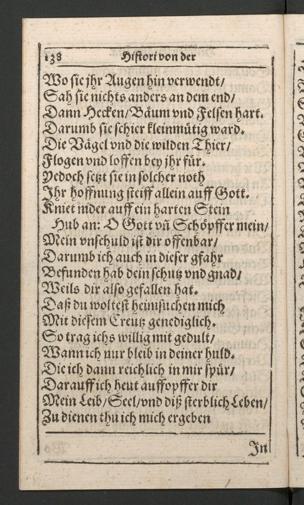 138 Histori von der
Wo sie jhr Augen hin verwendt/
Sah sie nichts anders an dem end/
Dann Hecken/ Bäum vnd Felsen hart.
Darumb sie schier kleinmütig ward.
Die Vägel vnd die wilden Thier/
Flogen vnd loffen bey jhr für.
Yedoch setzt sie in solcher noth
Ihr hoffnung steiff allein auff Gott.
Kniet nider auff ein harten Stein
Hub an: O Gott vñ Schöpffer mein/
Mein vnschuld ist dir offenbar/
Darumb ich auch in dieser gfahr
Befunden hab dein schutz vnd gnad/
Weils dir also gefallen hat.
Daß du woltest heimsuchen mich
Mit diesem Creutz genediglich.
So trag ichs willig mit gedult/
Wann ich nur bleib in deiner huld.
Die ich dann reichlich in mir spür/
Darauff ich heut auffopffer dir
Mein Leib/ Seel/ vnd diß sterblich Leben/
Zu dienen thu ich mich ergeben
In